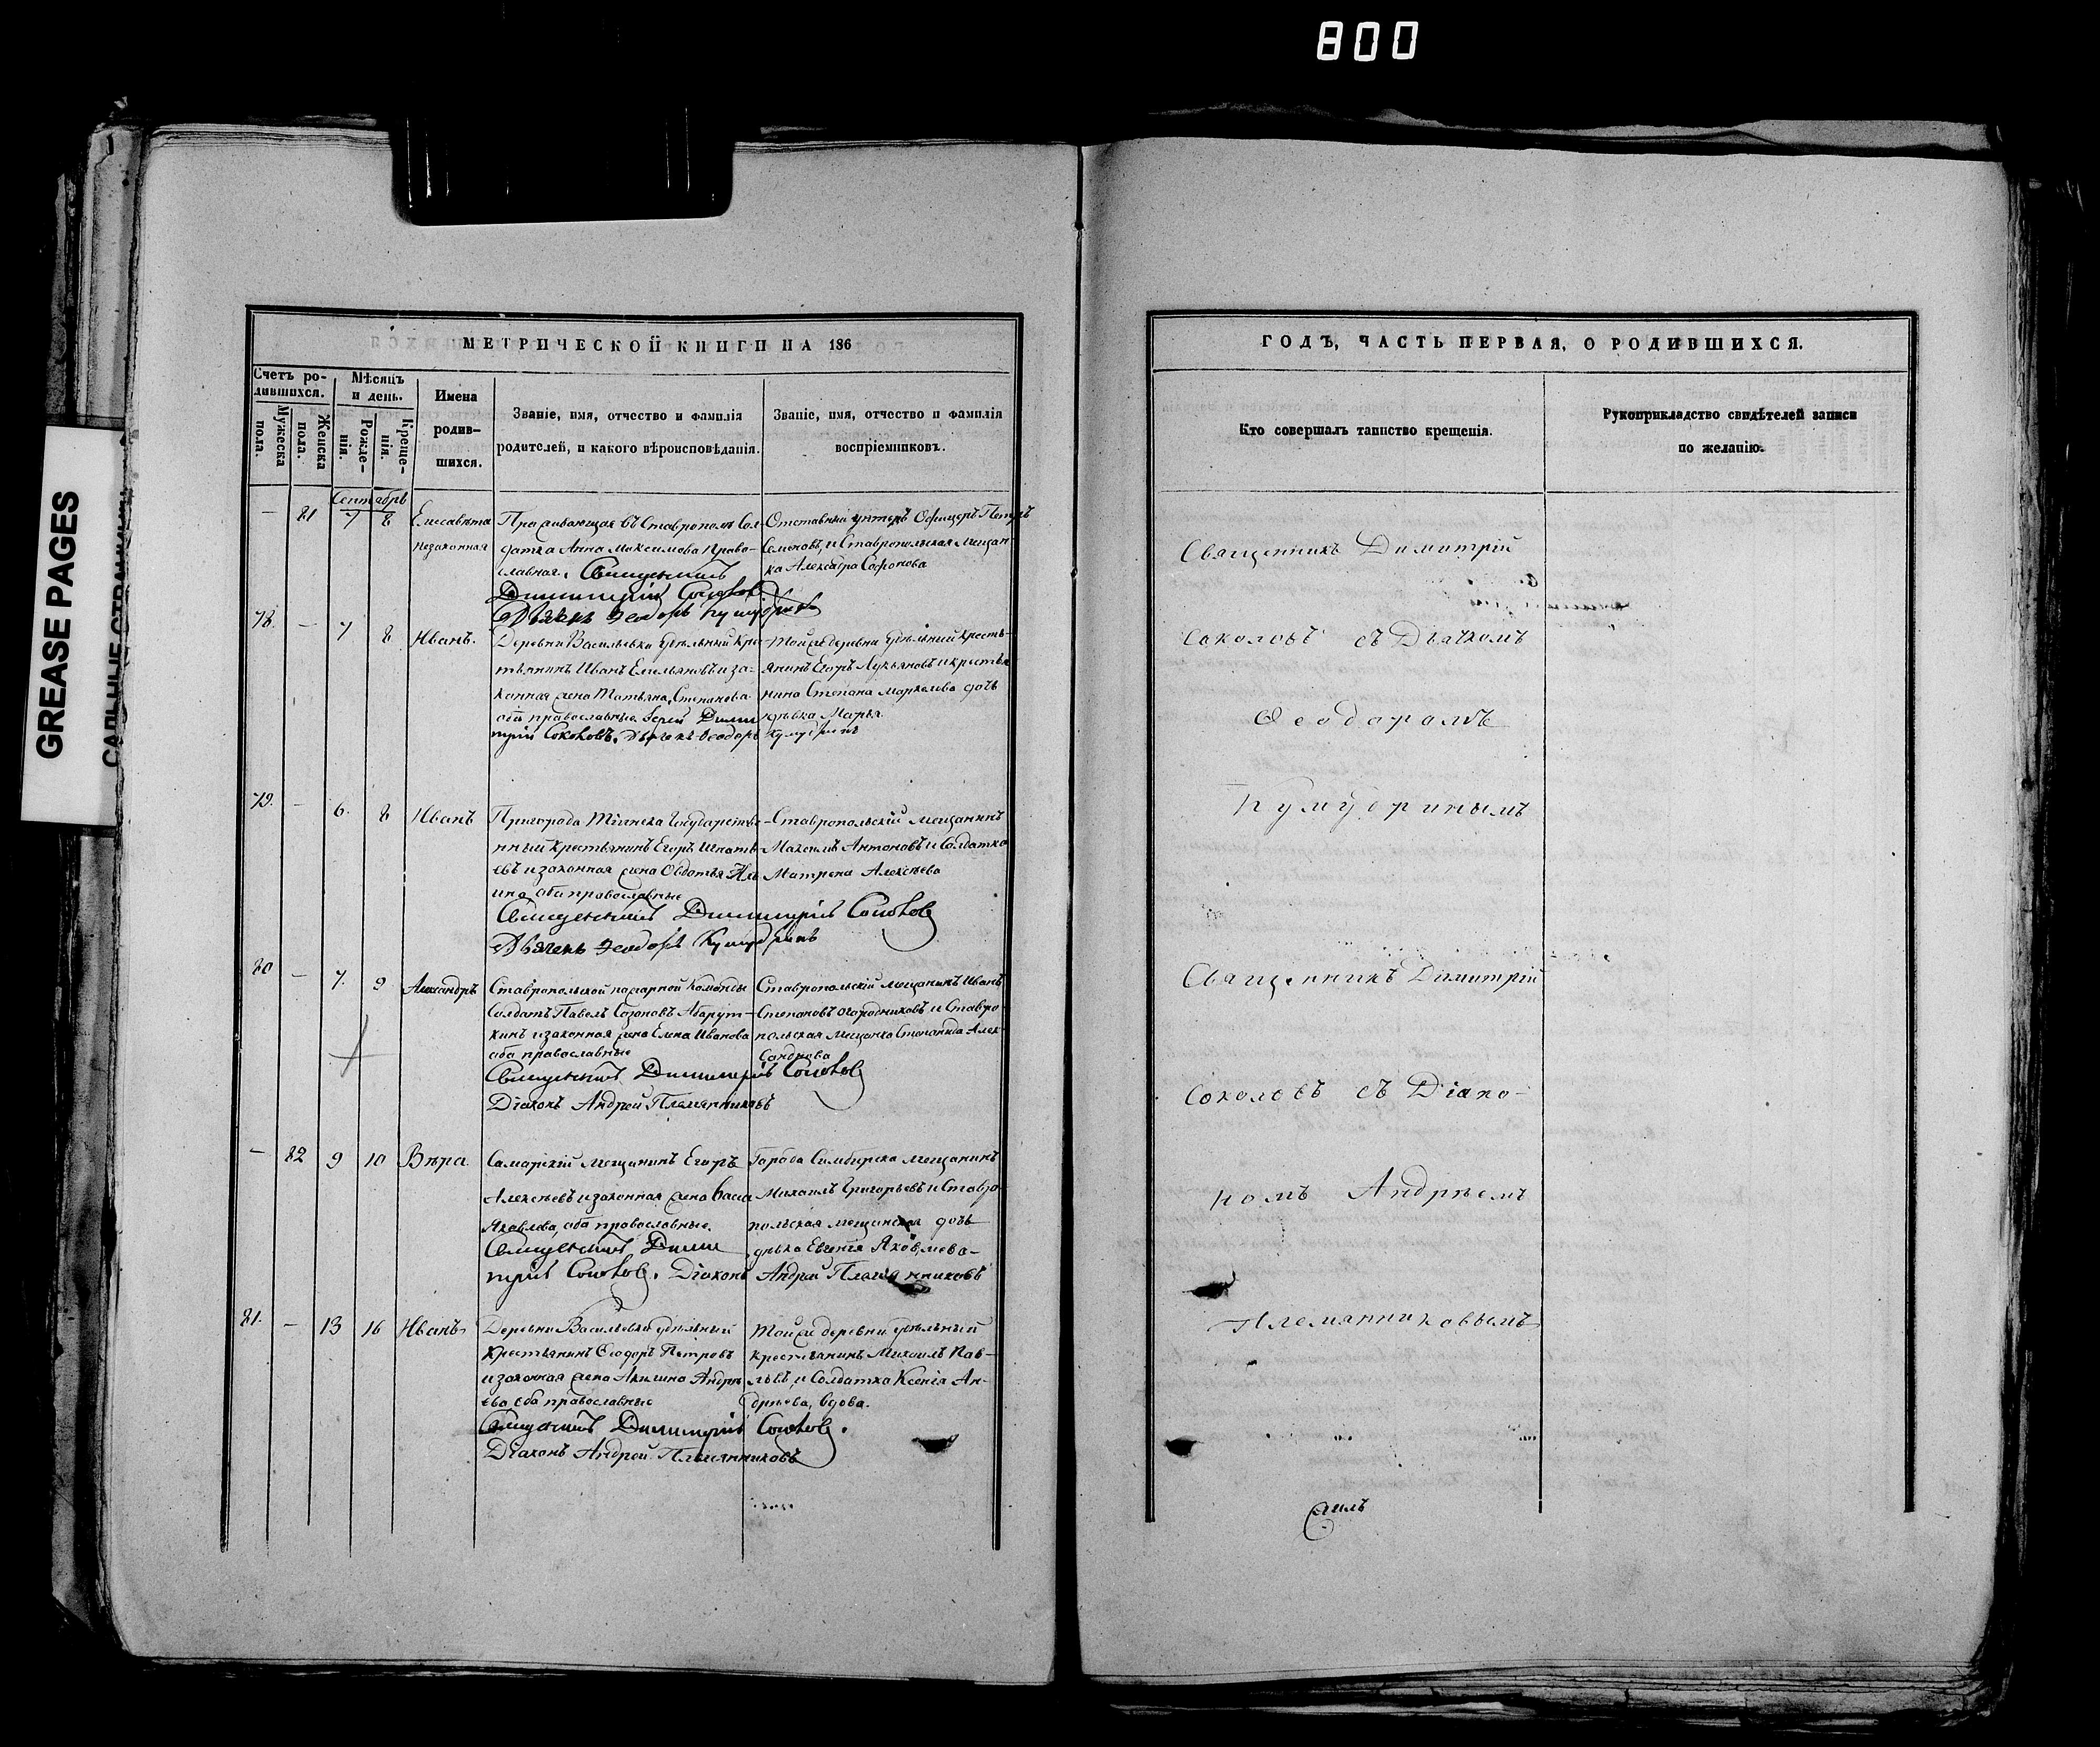 800
GREASE PAGES
МЕТРИЧЕСКОЙ КНИГИ НА 186
Счетъ ро-
дившихся.
Мужеска
пола.
Женска
пола.
Мѣсяцъ
и день.
Рожде-
нія.
Креще-
нія.
Имена
родив-
шихся.
Званіе, имя, отчество и фамилія
родителей, и какого вѣроисповѣданія.
Званіе, имя, отчество и фамилія
воспріемниковъ.
Сентабрь
— 81 7 8
Елисавѣта
незаконная
Проживающая въ Ставрополѣ Сол-
датка Анна Максимова право-
славная. Священникъ
Димитрій Соколовъ
Дьячекъ Ѳеодоръ Кумудринъ
Отставный унтеръ Офицеръ Петръ
Семеновъ, и Ставропольская мещан-
ка Александра Сафонова
78. — 7 8
Иванъ.
Деревни Васильевки Удѣльный Кре-
стьянинъ Иванъ Емельяновъ и за-
конная жена Татьяна Степанова
оба православные. Іерей Дими
трій Соколовъ. Дьячекъ Ѳеодоръ Кумудринъ
Той же деревни Удѣльный кресть-
янинъ Егоръ Лукьяновъ и крестья
нина Степана Маркелова дочь
дѣвка Марья.
79. — 6. 8
Иванъ
Пригорода Тіинска Государстве-
нный Крестьянинъ Егоръ Игнать-
евъ и законная жена Овдотья Иль
ина оба православные
Священникъ Димитрій Соколовъ
Дьячекъ Ѳеодоръ Кумудринъ
Ставропольскій мещанинъ
Максимъ Антоновъ и Солдатка
Матрена Алексѣева
80 — 7. 9
Александръ
Ставропольской пожарной Команды
Солдатъ Павелъ Созоновъ
кинъ и законная жена Елена Иванова
оба православные
Священникъ Димитрій Соколовъ
Діаконъ Андрей Племянниковъ
Ставропольскій мещанинъ Иванъ
Степановъ Огородниковъ и Ставро-
польская мещанка Степанида Алек-
сандрова
— 82 9 10
Вѣра.
Самарскій мещанинъ Егоръ
Алексѣевъ и законная жена Васса
Яковлева, оба православные.
Священникъ Дими
трій Соколовъ. Діаконъ Андрей Племянниковъ
Города Симбирска мещанинъ
Михаилъ Григорьевъ и Ставро-
польская мещанская дочь
дѣвка Евгенія Яковлева-
81. — 13 16
Иванъ
Деревни Васильевки удѣльный
крестьянинъ Ѳеодоръ Петровъ
и законная жена Акилина Андрѣ
ева оба православные
Священникъ Димитрій Соколовъ.
Діаконъ Андрей Племянниковъ
Той же деревни удѣльный
крестьянинъ Михаилъ Пав-
ловъ, и Солдатка Ксенія Ан-
дрѣева, вдова.
ГОДЪ, ЧАСТЬ ПЕРВАЯ, О РОДИВШИХСЯ.
Кто совершалъ таинство крещенія.
Рукоприкладство свидѣтелей записи
по желанію.
Священникъ Димитрій
Соколовъ съ Дьячкомъ
Ѳеодоромъ
Кумудринымъ
Священникъ Димитрій
Соколовъ съ Діако-
номъ Андрѣемъ
Племянниковымъ